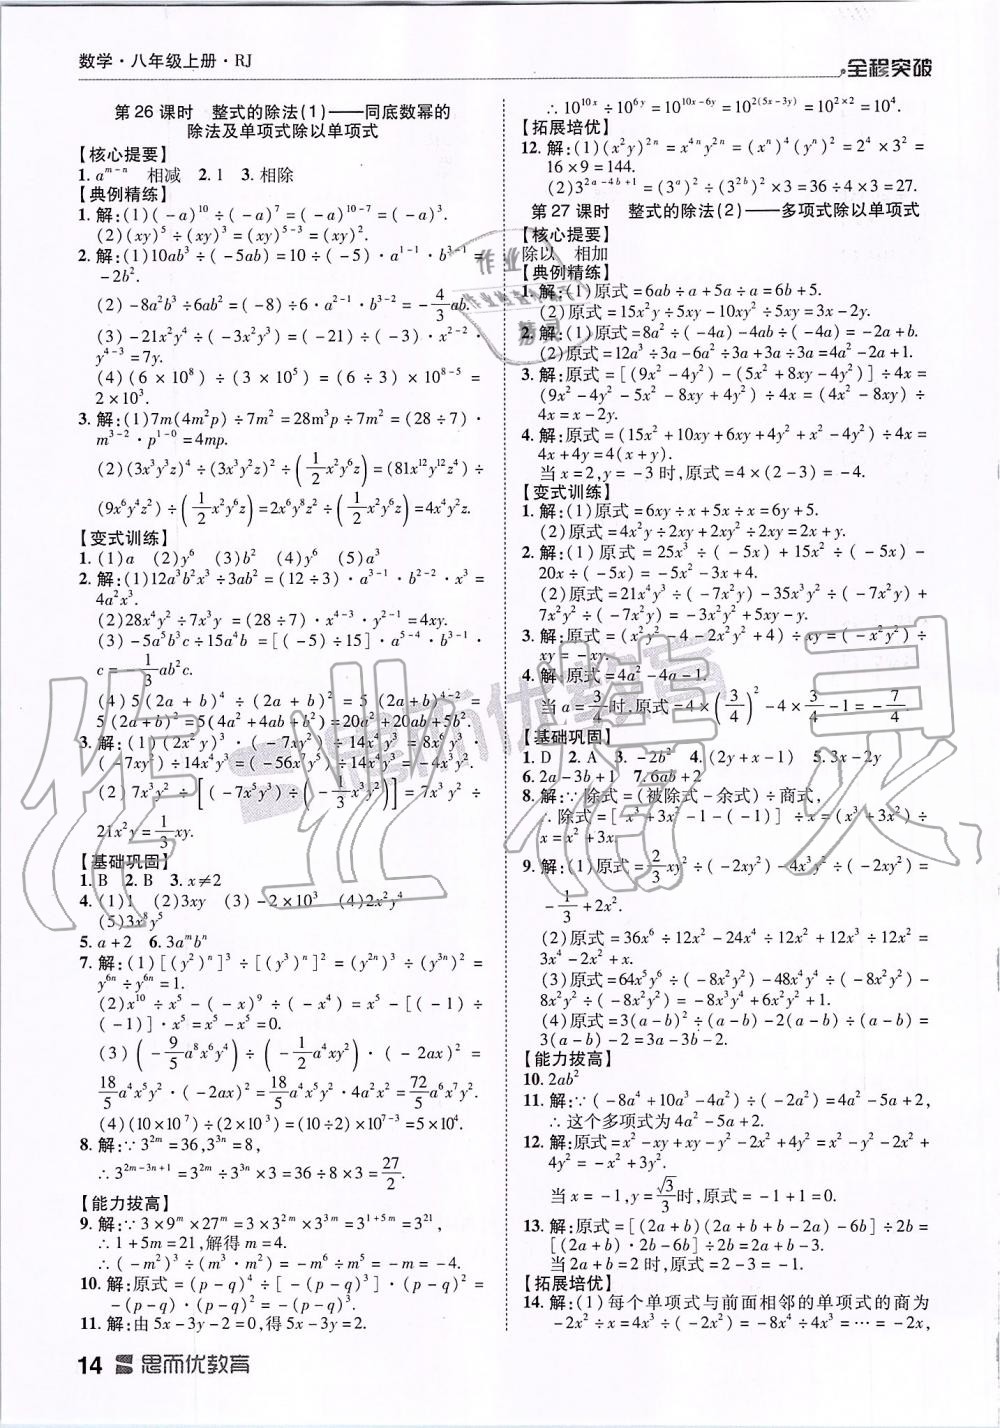 数学·八年级上册·RJ
全程突破
第26课时 整式的除法(1)——同底数幂的
除法及单项式除以单项式
【核心提要】
1. a^{m-n} 相减 2. 1 3. 相除
【典例精练】
1. 解:(1)(-a)^{10}÷(-a)^7=(-a)^{10-7}=(-a)^3.
(2)(xy)^5÷(xy)^3=(xy)^{5-3}=(xy)^2.
2. 解:(1)10ab^3÷(-5ab)=10÷(-5)·a^{1-1}·b^{3-1}=
-2b^2.
(2)-8a^2b^3÷6ab^2=(-8)÷6·a^{2-1}·b^{3-2}=-4/3ab.
(3)-21x^2y^4÷(-3x^2y^3)=(-21)÷(-3)·x^{2-2}·
y^{4-3}=7y.
(4)(6×10^8)÷(3×10^5)=(6÷3)×10^{8-5}=
2×10^3.
3. 解:(1)7m(4m^2p)÷7m^2=28m^3p÷7m^2=(28÷7)·
m^{3-2}·p^{1-0}=4mp.
(2)(3x^3y^3z)^4÷(3x^3y^2z)^2÷(1/2x^2y^6z)=(81x^{12}y^{12}z^4)÷
(9x^6y^4z^2)÷(1/2x^2y^6z)=2x^6y^8z^2÷(1/2x^2y^6z)=4x^4y^2z.
【变式训练】
1. (1)a (2)y^6 (3)b^2 (4)y^6 (5)a^3
2. 解:(1)12a^3b^2x^3÷3ab^2=(12÷3)·a^{3-1}·b^{2-2}·x^3=
4a^2x^3.
(2)28x^4y^2÷7x^3y=(28÷7)·x^{4-3}·y^{2-1}=4xy.
(3)-5a^5b^3c÷15a^4b=[(-5)÷15]·a^{5-4}·b^{3-1}·
c=-1/3ab^2c.
(4)5(2a+b)^4÷(2a+b)^2=5(2a+b)^{4-2}=
5(2a+b)^2=5(4a^2+4ab+b^2)=20a^2+20ab+5b^2.
3. 解:(1)(2x^2y)^3·(-7xy^2)÷14x^4y^3=8x^6y^3·
(-7xy^2)÷14x^4y^3=(-56x^7y^5)÷14x^4y^3=-4x^3y^2.
(2)7x^3y^2÷[(-7x^5y^3)÷(-1/3x^3y^2)]=7x^3y^2÷
21x^2y=1/3xy.
【基础巩固】
1. B 2. B 3. x≠2
4. (1)1 (2)3xy (3)-2×10^3 (4)2x^2y^4
(5)3x^8y^5
5. a+2 6. 3a^mb^n
7. 解:(1)[(y^2)^n]^3÷[(y^3)^n]^2=(y^{2n})^3÷(y^{3n})^2=
y^{6n}÷y^{6n}=1.
(2)x^{10}÷x^5-(-x)^9÷(-x^4)=x^5-[(-1)÷
(-1)]·x^5=x^5-x^5=0.
(3)(-9/5a^8x^6y^4)÷(-1/2a^4xy^2)÷(-2ax)^2=
18/5a^4x^5y^2·(-2ax)^2=18/5a^4x^5y^2·4a^2x^2=72/5a^6x^7y^2.
(4)(10×10^7)÷(2×10^3)=(10÷2)×10^{7-3}=5×10^4.
8. 解:∵3^{2m}=36,3^{3n}=8,
∴3^{2m-3n+1}=3^{2m}÷3^{3n}×3=36÷8×3=27/2.
【能力拔高】
9. 解:∵3×9^m×27^m=3×3^{2m}×3^{3m}=3^{1+5m}=3^{21},
∴1+5m=21,解得m=4.
∴(-m^2)^3÷(m^3·m^2)=-m^6÷m^5=-m=-4.
10. 解:原式=(p-q)^4÷[-(p-q)^3]·(p-q)^2=
-(p-q)·(p-q)^2=-(p-q)^3.
11. 解:由5x-3y-2=0,得5x-3y=2.
∴10^{10x}÷10^{6y}=10^{10x-6y}=10^{2(5x-3y)}=10^{2×2}=10^4.
【拓展培优】
12. 解:(1)(x^2y)^{2n}=x^{4n}y^{2n}=(x^n)^4(y^n)^2=2^4×3^2=
16×9=144.
(2)3^{2a-4b+1}=(3^a)^2÷(3^{2b})^2×3=36÷4×3=27.
第27课时 整式的除法(2)——多项式除以单项式
【核心提要】
除以 相加
【典例精练】
1. 解:(1)原式=6ab÷a+5a÷a=6b+5.
(2)原式=15x^2y÷5xy-10xy^2÷5xy=3x-2y.
2. 解:(1)原式=8a^2÷(-4a)-4ab÷(-4a)=-2a+b.
(2)原式=12a^3÷3a-6a^2÷3a+3a÷3a=4a^2-2a+1.
3. 解:原式=[(9x^2-4y^2)-(5x^2+8xy-4y^2)]÷4x=
(9x^2-4y^2-5x^2-8xy+4y^2)÷4x=(4x^2-8xy)÷
4x=x-2y.
4. 解:原式=(15x^2+10xy+6xy+4y^2+x^2-4y^2)÷4x=
4x+4y=4(x+y).
当x=2,y=-3时,原式=4×(2-3)=-4.
【变式训练】
1. 解:(1)原式=6xy÷x+5x÷x=6y+5.
(2)原式=4x^2y÷2xy+2xy^2÷2xy=2x+y.
2. 解:(1)原式=25x^3÷(-5x)+15x^2÷(-5x)-
20x÷(-5x)=-5x^2-3x+4.
(2)原式=21x^4y^3÷(-7x^2y)-35x^3y^2÷(-7x^2y)+
7x^2y^2÷(-7x^2y)=-3x^2y^2+5xy-y.
3. 解:原式=(x^2y^2-4-2x^2y^2+4)÷xy=(-x^2y^2)÷
xy=-xy.
4. 解:原式=4a^2-4a-1.
当a=3/4时,原式=4×(3/4)^2-4×3/4-1=-7/4
【基础巩固】
1. D 2. A 3. -2b^2 4. (2y+x-1) 5. 3x-2y
6. 2a-3b+1 7. 6ab+2
8. 解:∵除式=(被除式-余式)÷商式,
∴除式=[x^3+3x^2-1-(-1)]÷x=(x^3+3x^2)÷
x=x^2+3x.
9. 解:(1)原式=2/3xy^2÷(-2xy^2)-4x^3y^2÷(-2xy^2)=
-1/3+2x^2.
(2)原式=36x^6÷12x^2-24x^4÷12x^2+12x^3÷12x^2=
3x^4-2x^2+x.
(3)原式=64x^5y^6÷(-8x^2y^2)-48x^4y^4÷(-8x^2y^2)-
8x^2y^2÷(-8x^2y^2)=-8x^3y^4+6x^2y^2+1.
(4)原式=3(a-b)^2÷(a-b)-2(a-b)÷(a-b)=
3(a-b)-2=3a-3b-2.
【能力拔高】
10. 2ab^2
11. 解:∵(-8a^4+10a^3-4a^2)÷(-2a^2)=4a^2-5a+2,
∴这个多项式为4a^2-5a+2.
12. 解:原式=x^2-xy+xy-y^2-2x^2+4y^2=x^2-y^2-2x^2+
4y^2=-x^2+3y^2.
当x=-1,y=√3/3时,原式=-1+1=0.
13. 解:原式=[(2a+b)(2a+b+b-2a)-6b]÷2b=
[(2a+b)·2b-6b]÷2b=2a+b-3.
当2a+b=2时,原式=2-3=-1.
【拓展培优】
14. 解:(1)每个单项式与前面相邻的单项式的商为
-2x^2÷x=4x^3÷(-2x^2)=-8x^4÷4x^3=…=-2x,
14 思而优教育